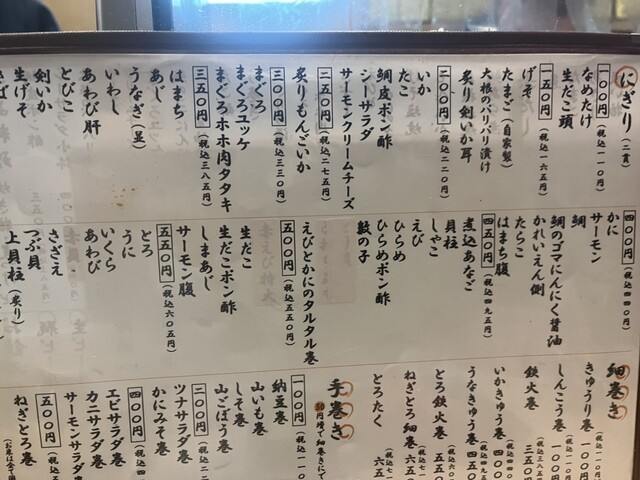 にぎり（二貫）
一〇〇円（税込一一〇円）
なめたけ
生だこ頭
一五〇円（税込一六五円）
げそ
たまご（自家製）
大根のパリパリ漬け
炙り剣いか耳
二〇〇円（税込二二〇円）
いか
たこ
鯛皮ポン酢
シーサラダ
サーモンクリームチーズ
二五〇円（税込二七五円）
炙りもんごいか
三〇〇円（税込三三〇円）
まぐろ
まぐろユッケ
まぐろホホ肉タタキ
三五〇円（税込三八五円）
はまち
あじ
うなぎ（並）
いわし
あわび肝
とびこ
剣いか
生げそ
さば
四〇〇円（税込四四〇円）
かに
サーモン
鯛
鯛のゴマにんにく醤油
かれいえん側
たらこ
はまち腹
四五〇円（税込四九五円）
煮込あなご
貝柱
しゃこ
えび
ひらめ
ひらめポン酢
数の子
五〇〇円（税込五五〇円）
えびとかにのタルタル巻
生だこ
生だこポン酢
しまあじ
サーモン腹
五五〇円（税込六〇五円）
とろ
うに
いくら
あわび
さざえ
つぶ貝
上貝柱（炙り）
細巻き
きゅうり巻 一〇〇円
しんこう巻 一〇〇円
鉄火巻 三五〇円
いかきゅう巻 四〇〇
うなきゅう巻 四五
とろ鉄火巻 五五
ねぎとろ細巻 六五
とろたく 六五
手巻き
50円増で細巻きにで
一〇〇円（税込一一〇
納豆巻
山いも巻
しそ巻
山ごぼう巻
二〇〇円（税込二二
ツナサラダ巻
かにみそ巻
四〇〇円（税込四
エビサラダ巻
カニサラダ巻
サーモンサラダ巻
五〇〇円（税込五
ねぎとろ巻